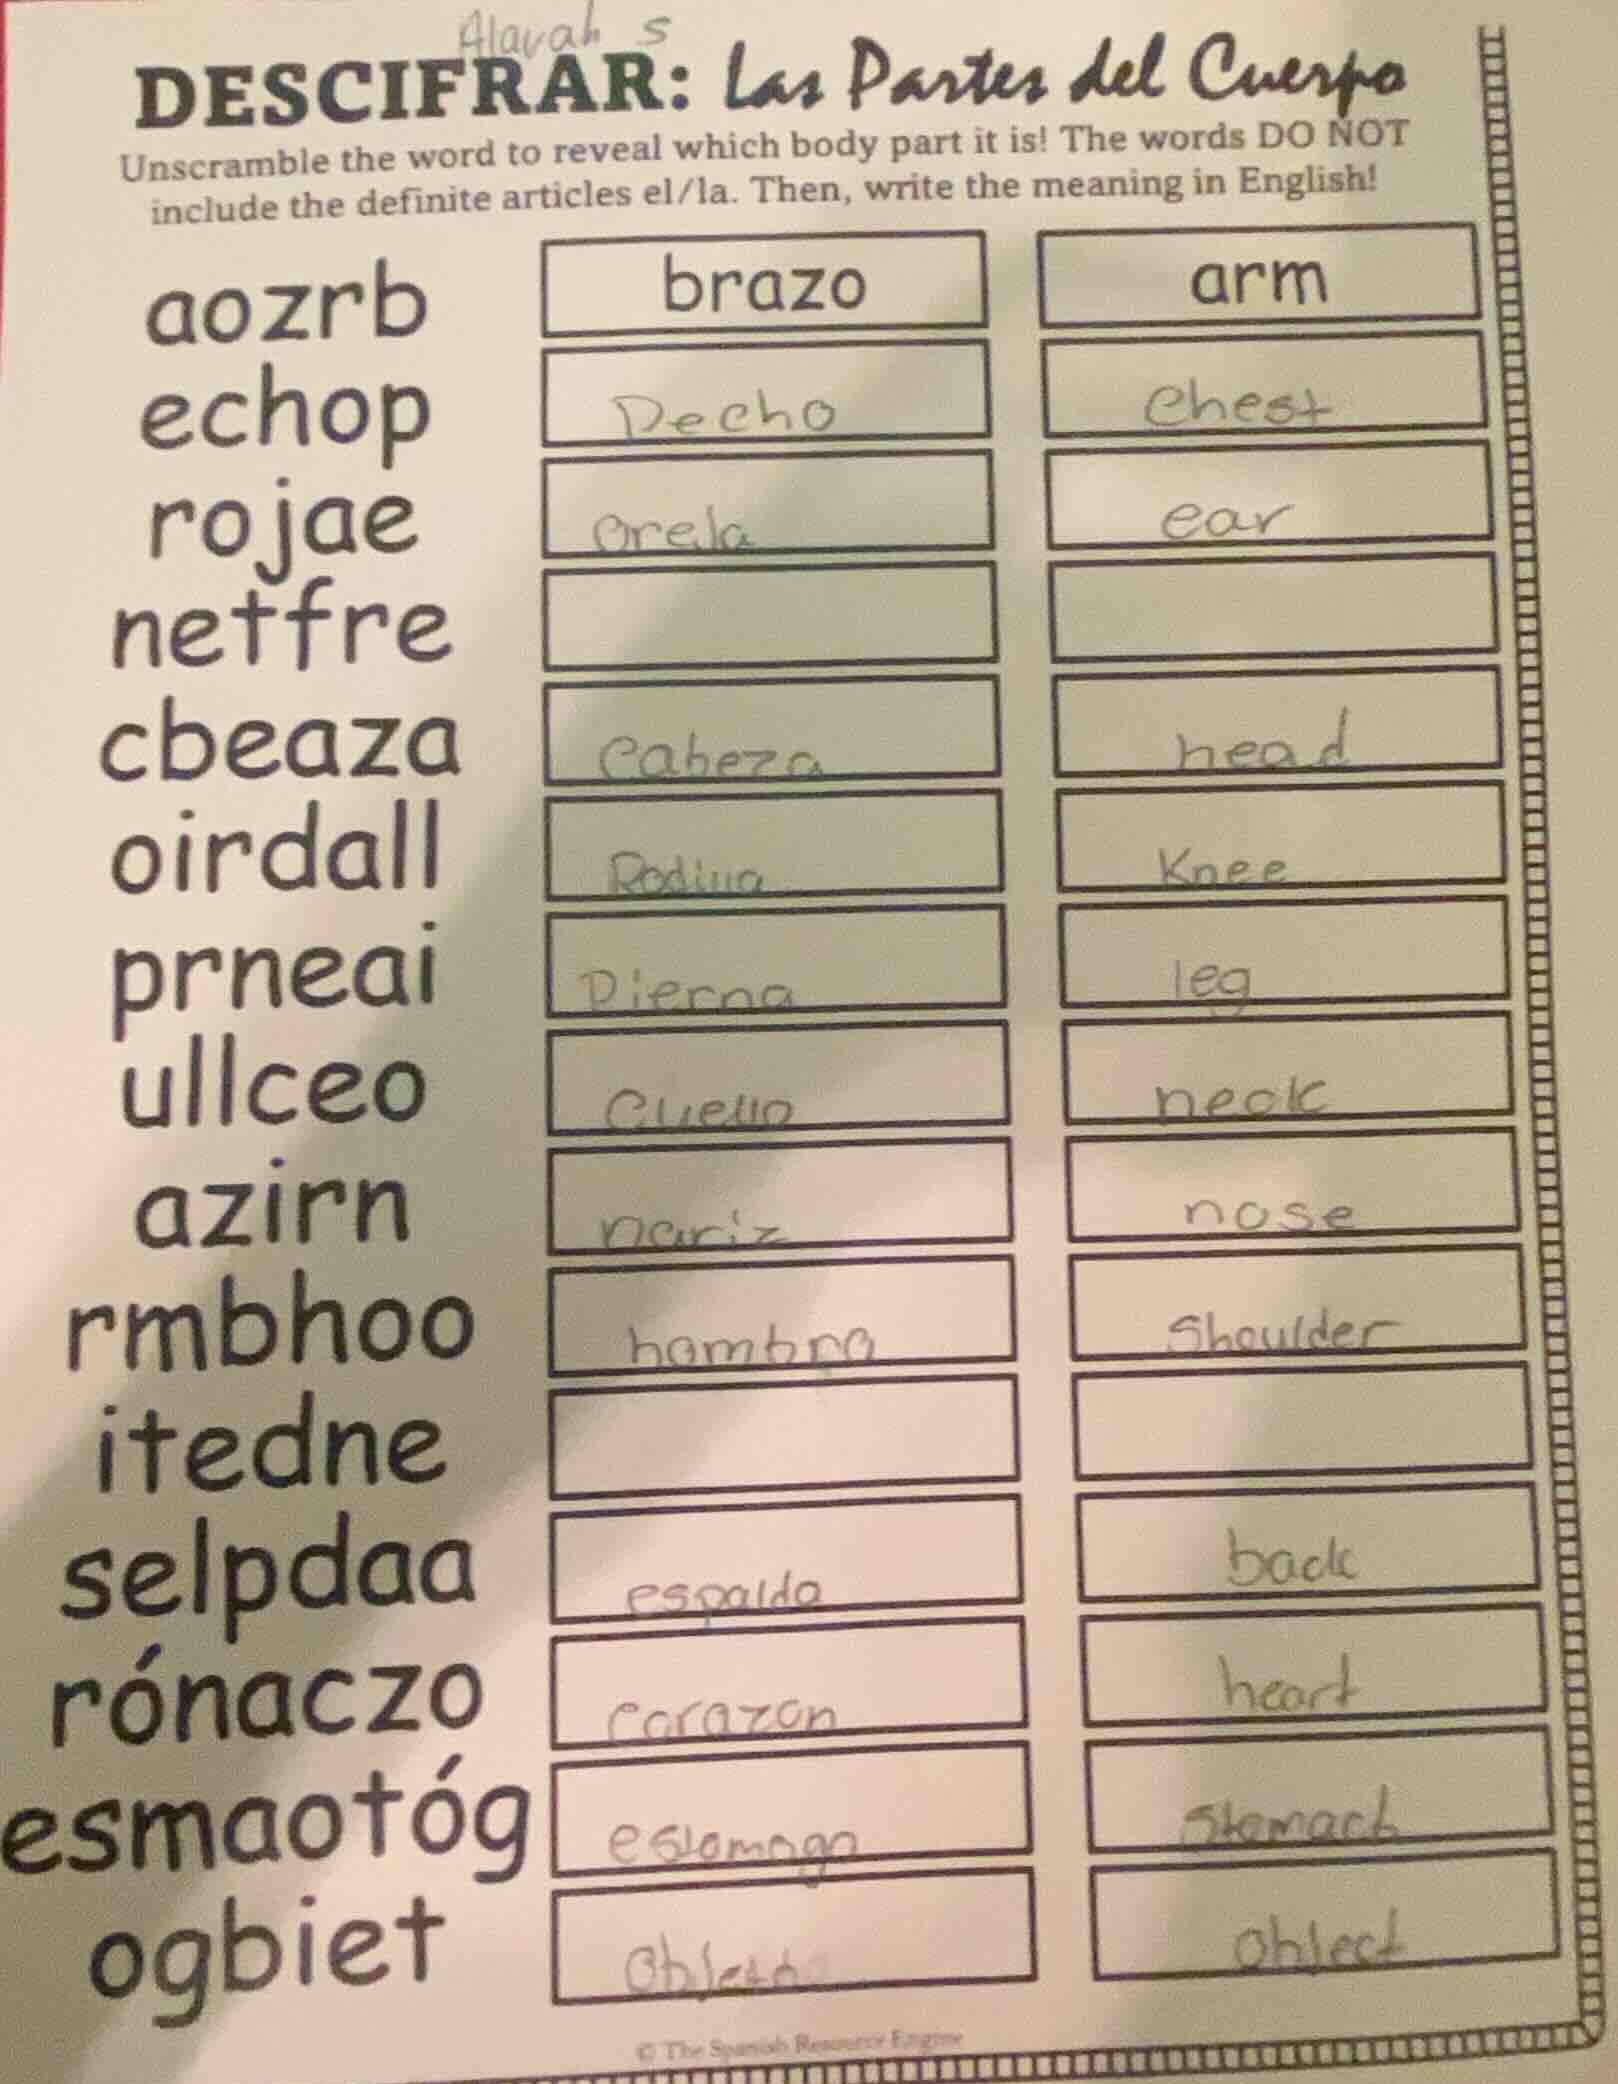 Alayah s
DESCIFRAR: Las Partes del Cuerpo
Unscramble the word to reveal which body part it is! The words DO NOT
include the definite articles el/la. Then, write the meaning in English!
aozrb brazo arm
echop Pecho Chest
rojae oreja ear
netfre
cbeaza Cabeza head
oirdall Rodilla Knee
prneai Pierna leg
ullceo Cuello neck
azirn nariz nose
rmbhoo hombro Shoulder
itedne
selpdaa espalda back
rónaczo corazon heart
esmaotóg estomago Stomach
ogbiet Objeto Object
© The Spanish Resource Engine